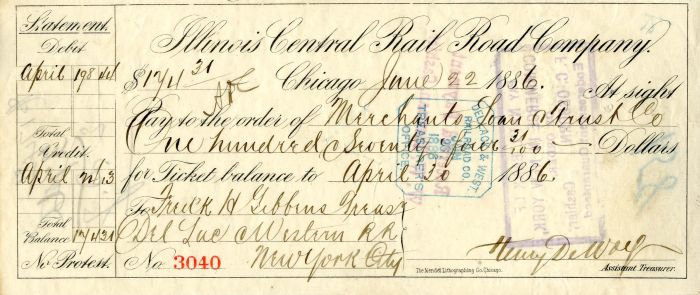 Statement.
Debit
April 198 44
Total
Credit.
April 24 13
Total
Balance 174 31
No Protest.
Illinois Central Rail Road Company.
$174 31 Chicago June 22 1886. At sight
Pay to the order of Merchants Loan & Trust Co
One hundred & Seventy four 31/100 Dollars
for Ticket balance to April 30 1886.
To Fredk H Gibbens Treasr
Del Lac & Western RR
No 3040 New York City
Henry DeWolf
Assistant Treasurer.
The Mendell Lithographing Co. Chicago.
DEL. LACK. & WEST.
RAILROAD CO.
JUN
1886
TREASURER'S
OFFICE